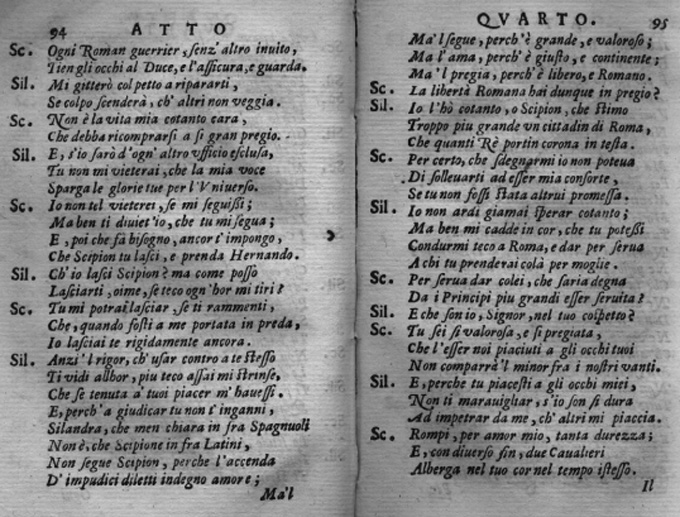 94 ATTO
Sc. Ogni Roman guerrier, senz' altro inuito,
Tien gli occhi al Duce, e l'assicura, e guarda.
Sil. Mi gitterò col petto a ripararti,
Se colpo scenderà, ch' altri non veggia.
Sc. Non è la vita mia cotanto cara,
Che debba ricomprarsi a sì gran pregio.
Sil. E, s'io sarò d'ogn' altro vfficio esclusa,
Tu non mi vieterai, che la mia voce
Sparga le glorie tue per l'Vniuerso.
Sc. Io non tel vieterei, se mi seguissi;
Ma ben ti diuiet'io, che tu mi segua;
E, poi che fà bisogno, ancor t'impongo,
Che Scipion tu lasci, e prenda Hernando.
Sil. Ch'io lasci Scipion? ma come posso
Lasciarti, oime, se teco ogn'hor mi tiri?
Sc. Tu mi potrai lasciar, se ti rammenti,
Che, quando fosti a me portata in preda,
Io lasciai te rigidamente ancora.
Sil. Anzi 'l rigor, ch' vsar contro a te stesso
Ti vidi allhor, piu teco assai mi strinse,
Che se tenuta a' tuoi piacer m' hauessi.
E, perch' a giudicar tu non t' inganni,
Silandra, che men chiara in fra Spagnuoli
Non è, che Scipione in fra Latini,
Non segue Scipion, perche l'accenda
D' impudici diletti indegno amore;
Ma'l
QVARTO. 95
Ma'l segue, perch'è grande, e valoroso;
Ma l'ama, perch'è giusto, e continente;
Ma 'l pregia, perch'è libero, e Romano.
Sc. La libertà Romana hai dunque in pregio?
Sil. Io l'hò cotanto, o Scipion, che stimo
Troppo piu grande vn cittadin di Roma,
Che quanti Rè portin corona in testa.
Sc. Per certo, che sdegnarmi io non poteua
Di solleuarti ad esser mia consorte,
Se tu non fossi stata altrui promessa.
Sil. Io non ardì giamai sperar cotanto;
Ma ben mi cadde in cor, che tu potessi
Condurmi teco a Roma, e dar per serua
A chi tu prenderai colà per moglie.
Sc. Per serua dar colei, che saria degna
Da i Principi piu grandi esser seruita?
Sil. E che son io, Signor, nel tuo cospetto?
Sc. Tu sei sì valorosa, e sì pregiata,
Che l'esser noi piaciuti a gli occhi tuoi
Non comparrà'l minor fra i nostri vanti.
Sil. E, perche tu piacesti a gli occhi miei,
Non ti marauigliar, s'io son sì dura
Ad impetrar da me, ch'altri mi piaccia.
Sc. Rompi, per amor mio, tanta durezza;
E, con diuerso fin, due Caualieri
Alberga nel tuo cor nel tempo istesso.
Il